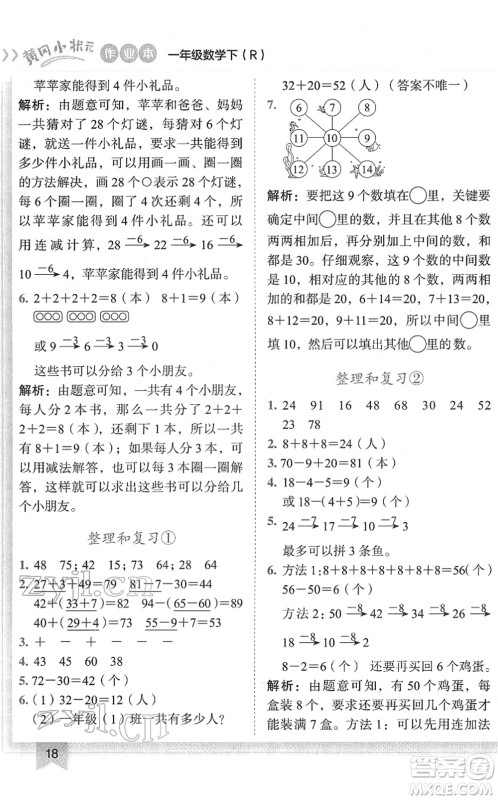 黄冈小状元 作业本 一年级数学下(R)
苹苹家能得到 4 件小礼品。
解析：由题意可知，苹苹和爸爸、妈妈
一共猜对了 28 个灯谜，每猜对 6 个灯
谜，就送一件小礼品，要求一共能得到
多少件小礼品，可以用画一画、圈一圈
的方法解决，画 28 个○表示 28 个灯谜，
每 6 个圈一圈，圈了 4 次还剩 4 个，所
以苹苹家能得到 4 件小礼品。还可以
用连减计算，28 —6→ 22 —6→ 16 —6→
10 —6→ 4，苹苹家能得到 4 件小礼品。
6. 2+2+2+2=8（本） 8+1=9（本）
○○○ ○○○ ○○○
或 9 —3→ 6 —3→ 3 —3→ 0
这些书可以分给 3 个小朋友。
解析：由题意可知，一共有 4 个小朋友，
每人分 2 本书，剩下 1 本，共有 2+2+
2+2=8（本），还剩下 1 本，所以共有
8+1=9（本）；如果每人分 3 本，可以
用减法解答，也可以每 3 本圈一圈解
答，就可以求出这些书可以分给几
个小朋友。
整理和复习①
1. 48 75；42 15；33 28 64
2. 27+3+49=79 81-7-6=68
42+(33+7)=82 94-(66-60)=88
40+(29+4)=73 55-9+7=53
3. + - + - -
4. 43 45 58 23 40
5. 72-30=42（个）
6. (1) 32-20=12（人）
(2) 一年级（1）班一共有多少人？
18
32+20=52（人）（答案不唯一）
7.
6 7 8
11 10 9
12 13 14
解析：要把这 9 个数填在○里，关键要
确定中间的○里的数，把其余 8 个数
两两相加，再分别加上中间的数，和都
和是 30。仔细观察，这 9 个数中间的
数是 10，所以剩下的 8 个数两两相加
的和应是 20，6+14=20，7+13=20，
8+12=20，9+11=20，所以中间○里
填 10，然后可以填出其他○里的数。
整理和复习②
1. 24 91 16 48 68 30 24 52
23 78
2. 8+8+8=24（人）
3. 70-9+20=81（本）
4. 18-4-5=9（个）
或 18-(4+5)=9（个）
5. 24 —7→ 17 —7→ 10 —7→ 3
最多可以拼 3 条鱼。
6. 方法 1：8+8+8+8+8+8+8=56（个）
56-50=6（个）
方法 2：50 —8→ 42 —8→ 34 —8→ 26 —8→
18 —8→ 10 —8→ 2
8-2=6（个） 还要再买回 6 个鸡蛋。
解析：由题意可知，一共有 50 个鸡蛋，每
盒装 8 个，要求还要再买回几个鸡蛋，
才能装满 7 盒。方法 1：可以先用连加法